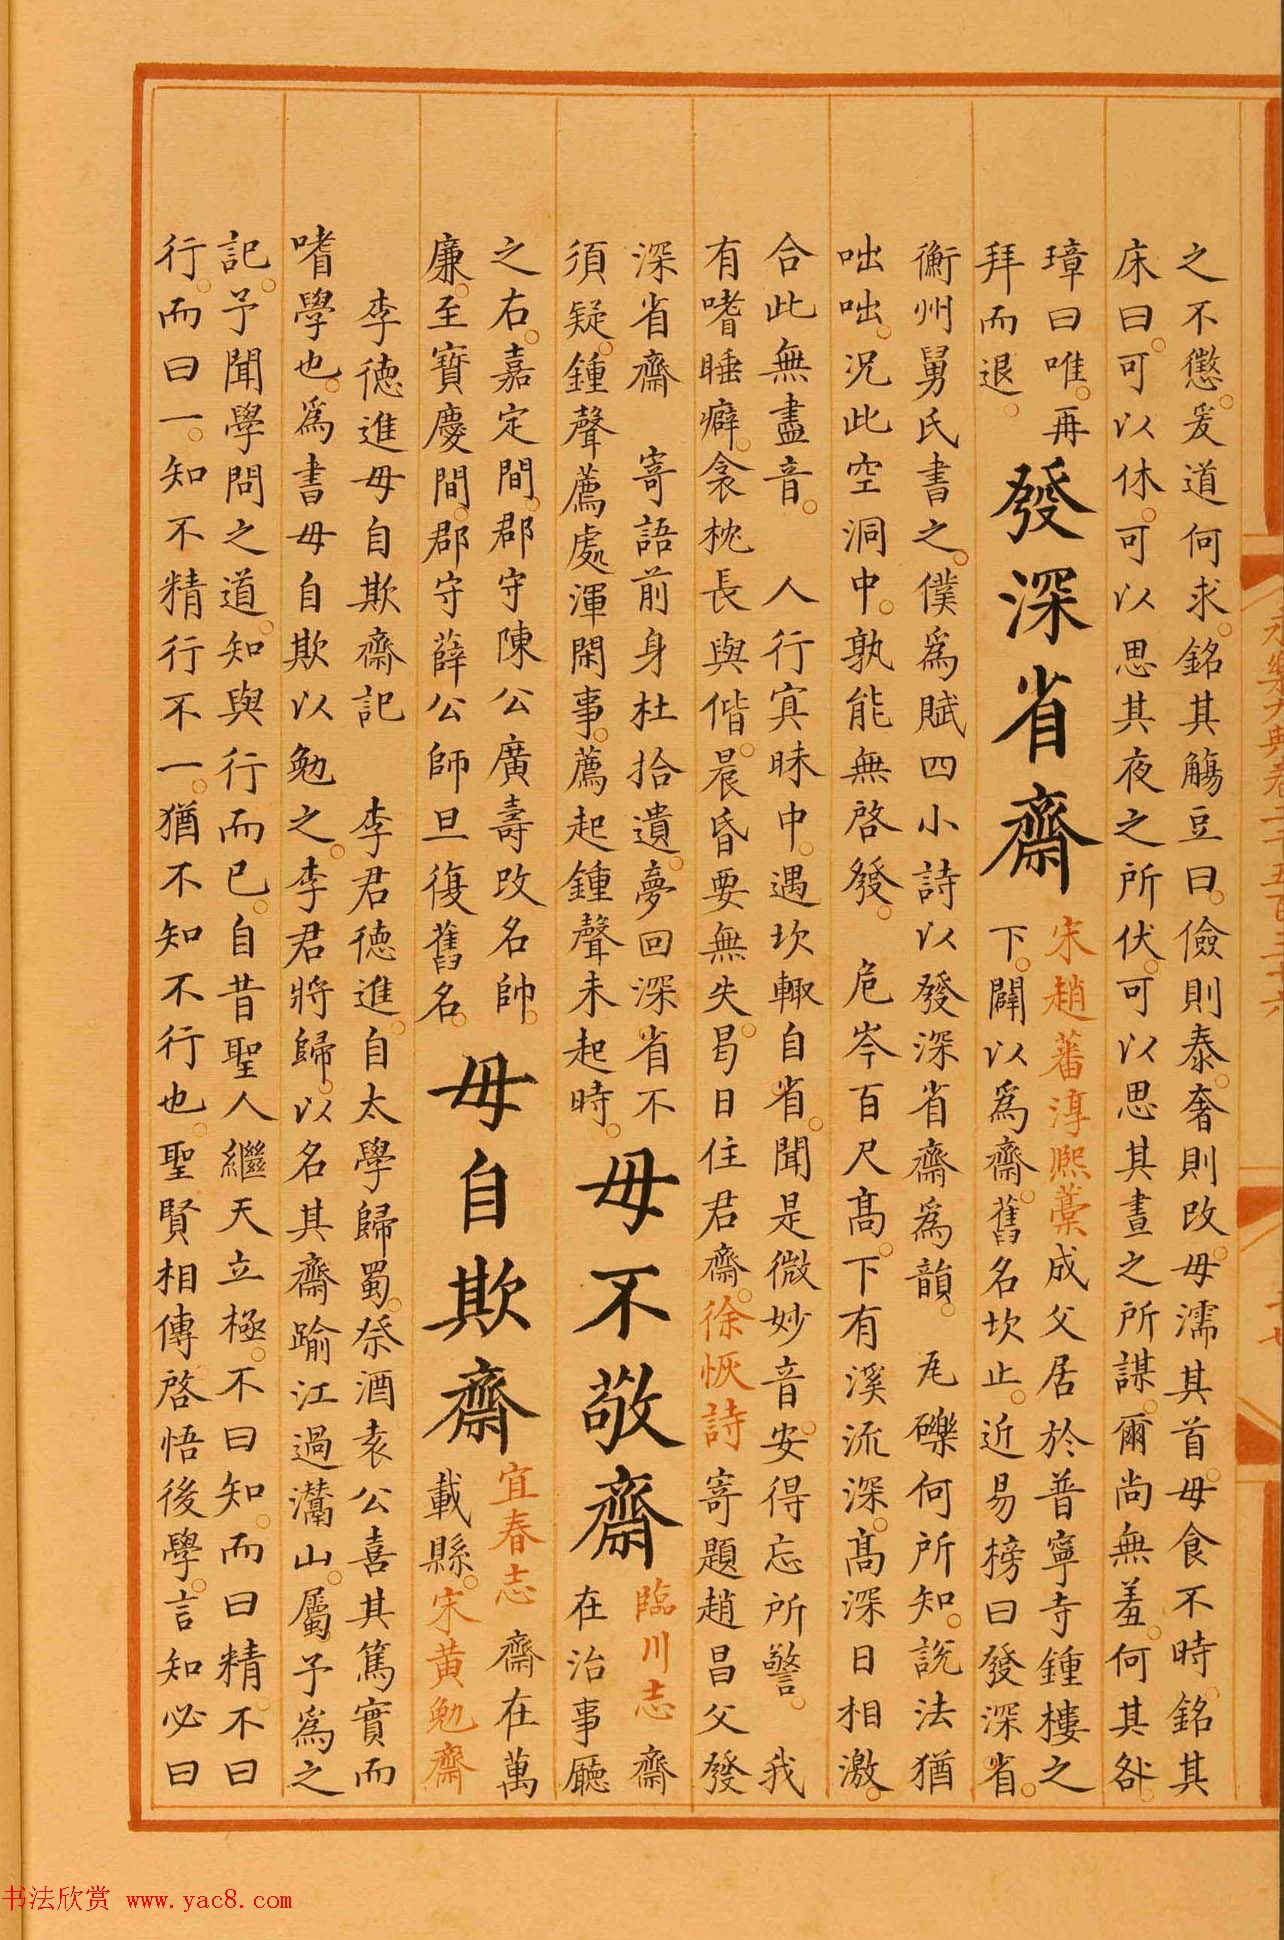 永樂大典卷二千五百三十六
之不懲。爰道何求。銘其觴豆曰。儉則泰。奢則改。毋濡其首。毋食不時。銘其
床曰。可以休。可以思其夜之所伏。可以思其晝之所謀。爾尚無羞。何其咎
璋曰唯。再
拜而退。
發深省齋
宋趙蕃淳熙藁 成父居於普寧寺鍾樓之
下。闢以爲齋。舊名坎止。近易榜曰發深省。
衡州舅氏書之。僕爲賦四小詩以發深省齋爲韻。 瓦礫何所知。說法猶
咄咄。況此空洞中。孰能無啓發。 危岑百尺高。下有溪流深。高深日相激。
合此無盡音。 人行寘昧中。遇坎輙自省。聞是微妙音。安得忘所警。 我
有嗜睡癖。衾枕長與偕。晨昏要無失。曷日住君齋。徐恢詩 寄題趙昌父發
深省齋 寄語前身杜拾遺。夢回深省不
須疑。鍾聲薦處渾閑事。薦起鍾聲未起時。
毋不敬齋
臨川志 齋
在治事廳
之右。嘉定間。郡守陳公廣壽改名帥
廉。至寶慶間。郡守薛公師旦復舊名。
毋自欺齋
宜春志 齋在萬
載縣。宋黃勉齋
李德進毋自欺齋記 李君德進。自太學歸蜀。祭酒袁公喜其篤實而
嗜學也。爲書毋自欺以勉之。李君將歸。以名其齋踰江過灊山。屬予爲之
記。予聞學問之道。知與行而已。自昔聖人繼天立極。不曰知。而曰精。不曰
行。而曰一。知不精行不一。猶不知不行也。聖賢相傳啓悟後學。言知必曰
书法欣赏 www.yac8.com